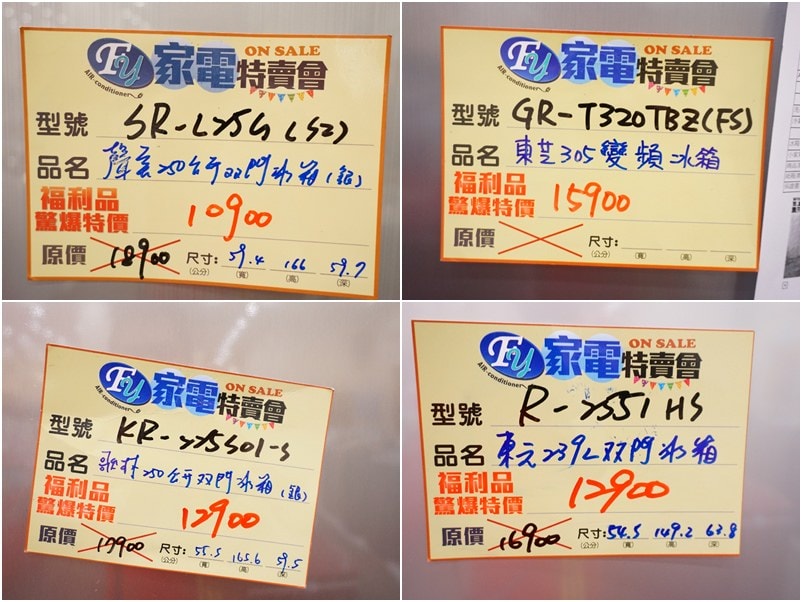 FY 家電特賣會 ON SALE
AIR-conditioner
型號 SR-L25G(S2)
品名 聲寶250公升双門冰箱(銀)
福利品
驚爆特價 10900
原價 18900 尺寸: 59.4 166 59.7
(公分) (寬) (高) (深)
FY 家電特賣會 ON SALE
AIR-conditioner
型號 GR-T320TBZ(FS)
品名 東芝305變頻冰箱
福利品
驚爆特價 15900
原價 尺寸:
(公分) (寬) (高) (深)
FY 家電特賣會 ON SALE
AIR-conditioner
型號 KR-225S01-S
品名 歌林250公升双門冰箱(銀)
福利品
驚爆特價 12900
原價 17900 尺寸: 55.5 165.6 59.5
(公分) (寬) (高) (深)
FY 家電特賣會 ON SALE
AIR-conditioner
型號 R-2551HS
品名 東元239L双門冰箱
福利品
驚爆特價 12900
原價 16900 尺寸: 54.5 149.2 63.8
(公分) (寬) (高) (深)